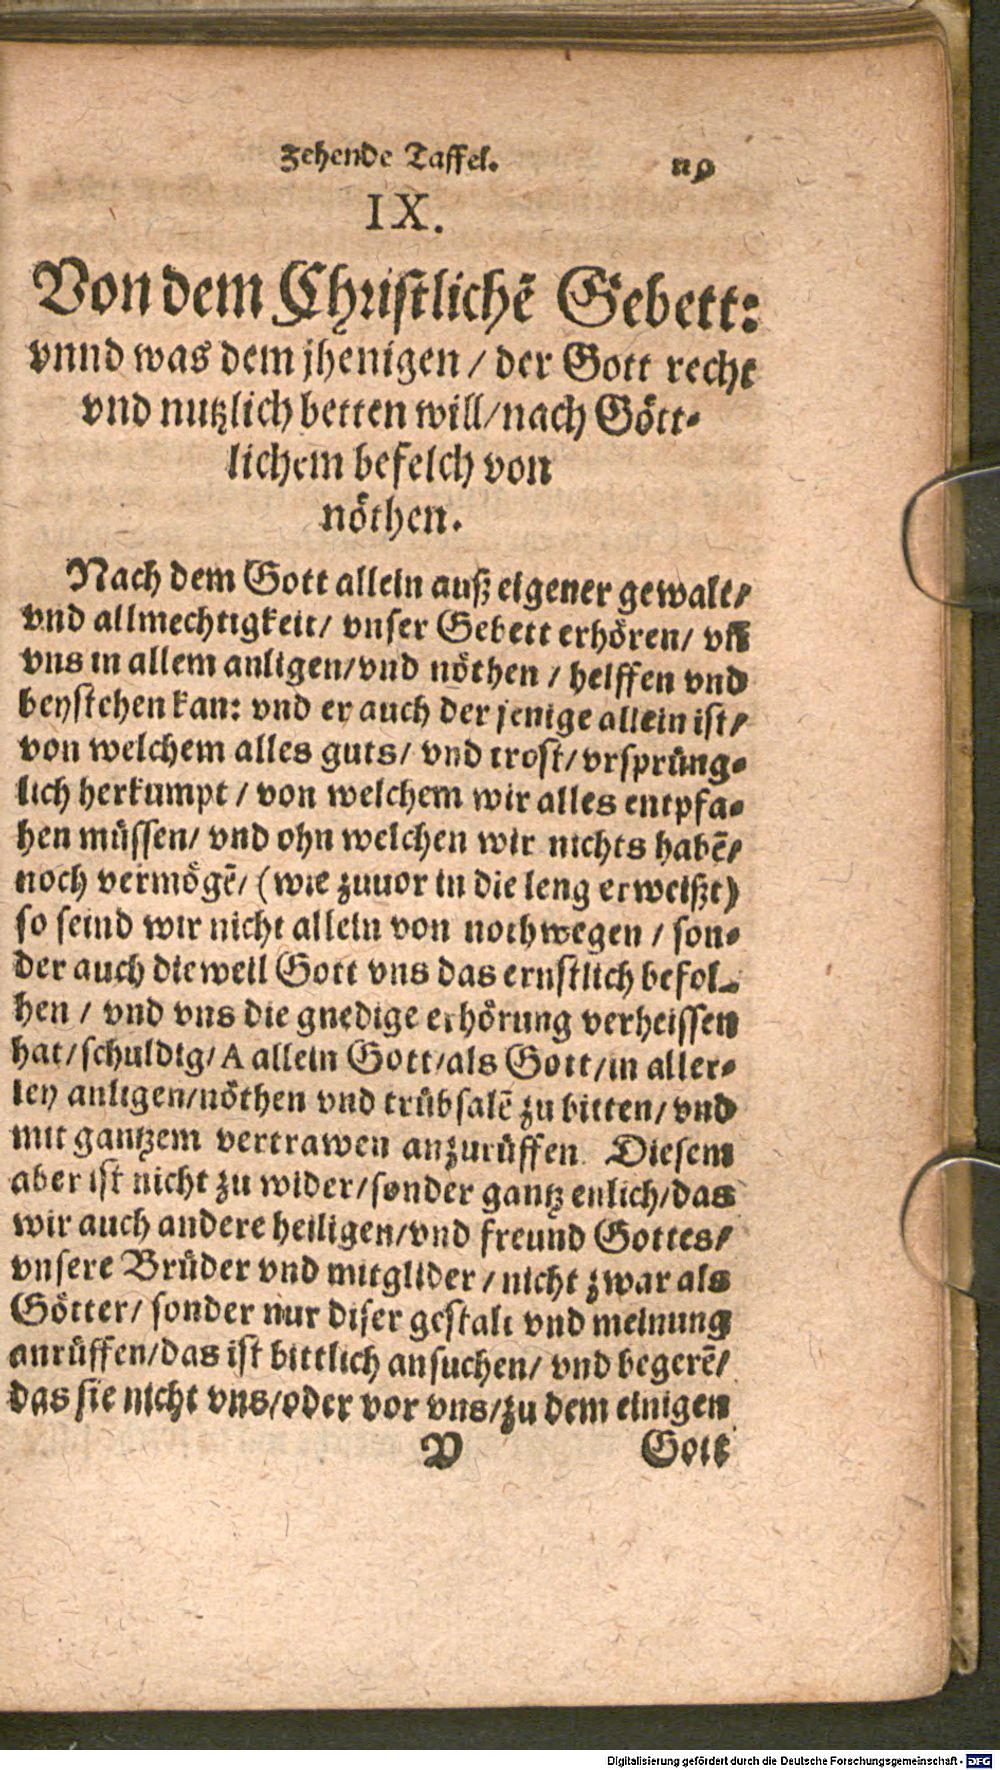 Zehende Taffel.
IX.
Von dem Christlichẽ Gebett:
vnnd was dem jhenigen / der Gott recht
vnd nutzlich betten will/nach Gött-
lichem befelch von
nöthen.
Nach dem Gott allein auß eigener gewalt/
vnd allmechtigkeit/ vnser Gebett erhören/ vñ
vns in allem anligen/vnd nöthen / helffen vnd
beystehen kan: vnd er auch der jenige allein ist/
von welchem alles guts/ vnd trost/ vrsprüng-
lich herkumpt / von welchem wir alles entpfa-
hen müssen/ vnd ohn welchen wir nichts habẽ/
noch vermögẽ/ (wie zuuor in die leng erweißt)
so seind wir nicht allein von noth wegen / son-
der auch dieweil Gott vns das ernstlich befol-
hen / vnd vns die gnedige erhörung verheissen
hat/schuldig/ A allein Gott/als Gott/in aller-
ley anligen/nöthen vnd trübsalẽ zu bitten/ vnd
mit gantzem vertrawen anzurüffen. Diesem
aber ist nicht zu wider/sonder gantz enlich/das
wir auch andere heiligen/vnd freund Gottes/
vnsere Brüder vnd mitglider / nicht zwar als
Götter/ sonder nur diser gestalt vnd meinung
anrüffen/das ist bittlich ansuchen/ vnd begerẽ/
das sie nicht vns/oder vor vns/zu dem einigen
V Gott
Digitalisierung gefördert durch die Deutsche Forschungsgemeinschaft - DFG